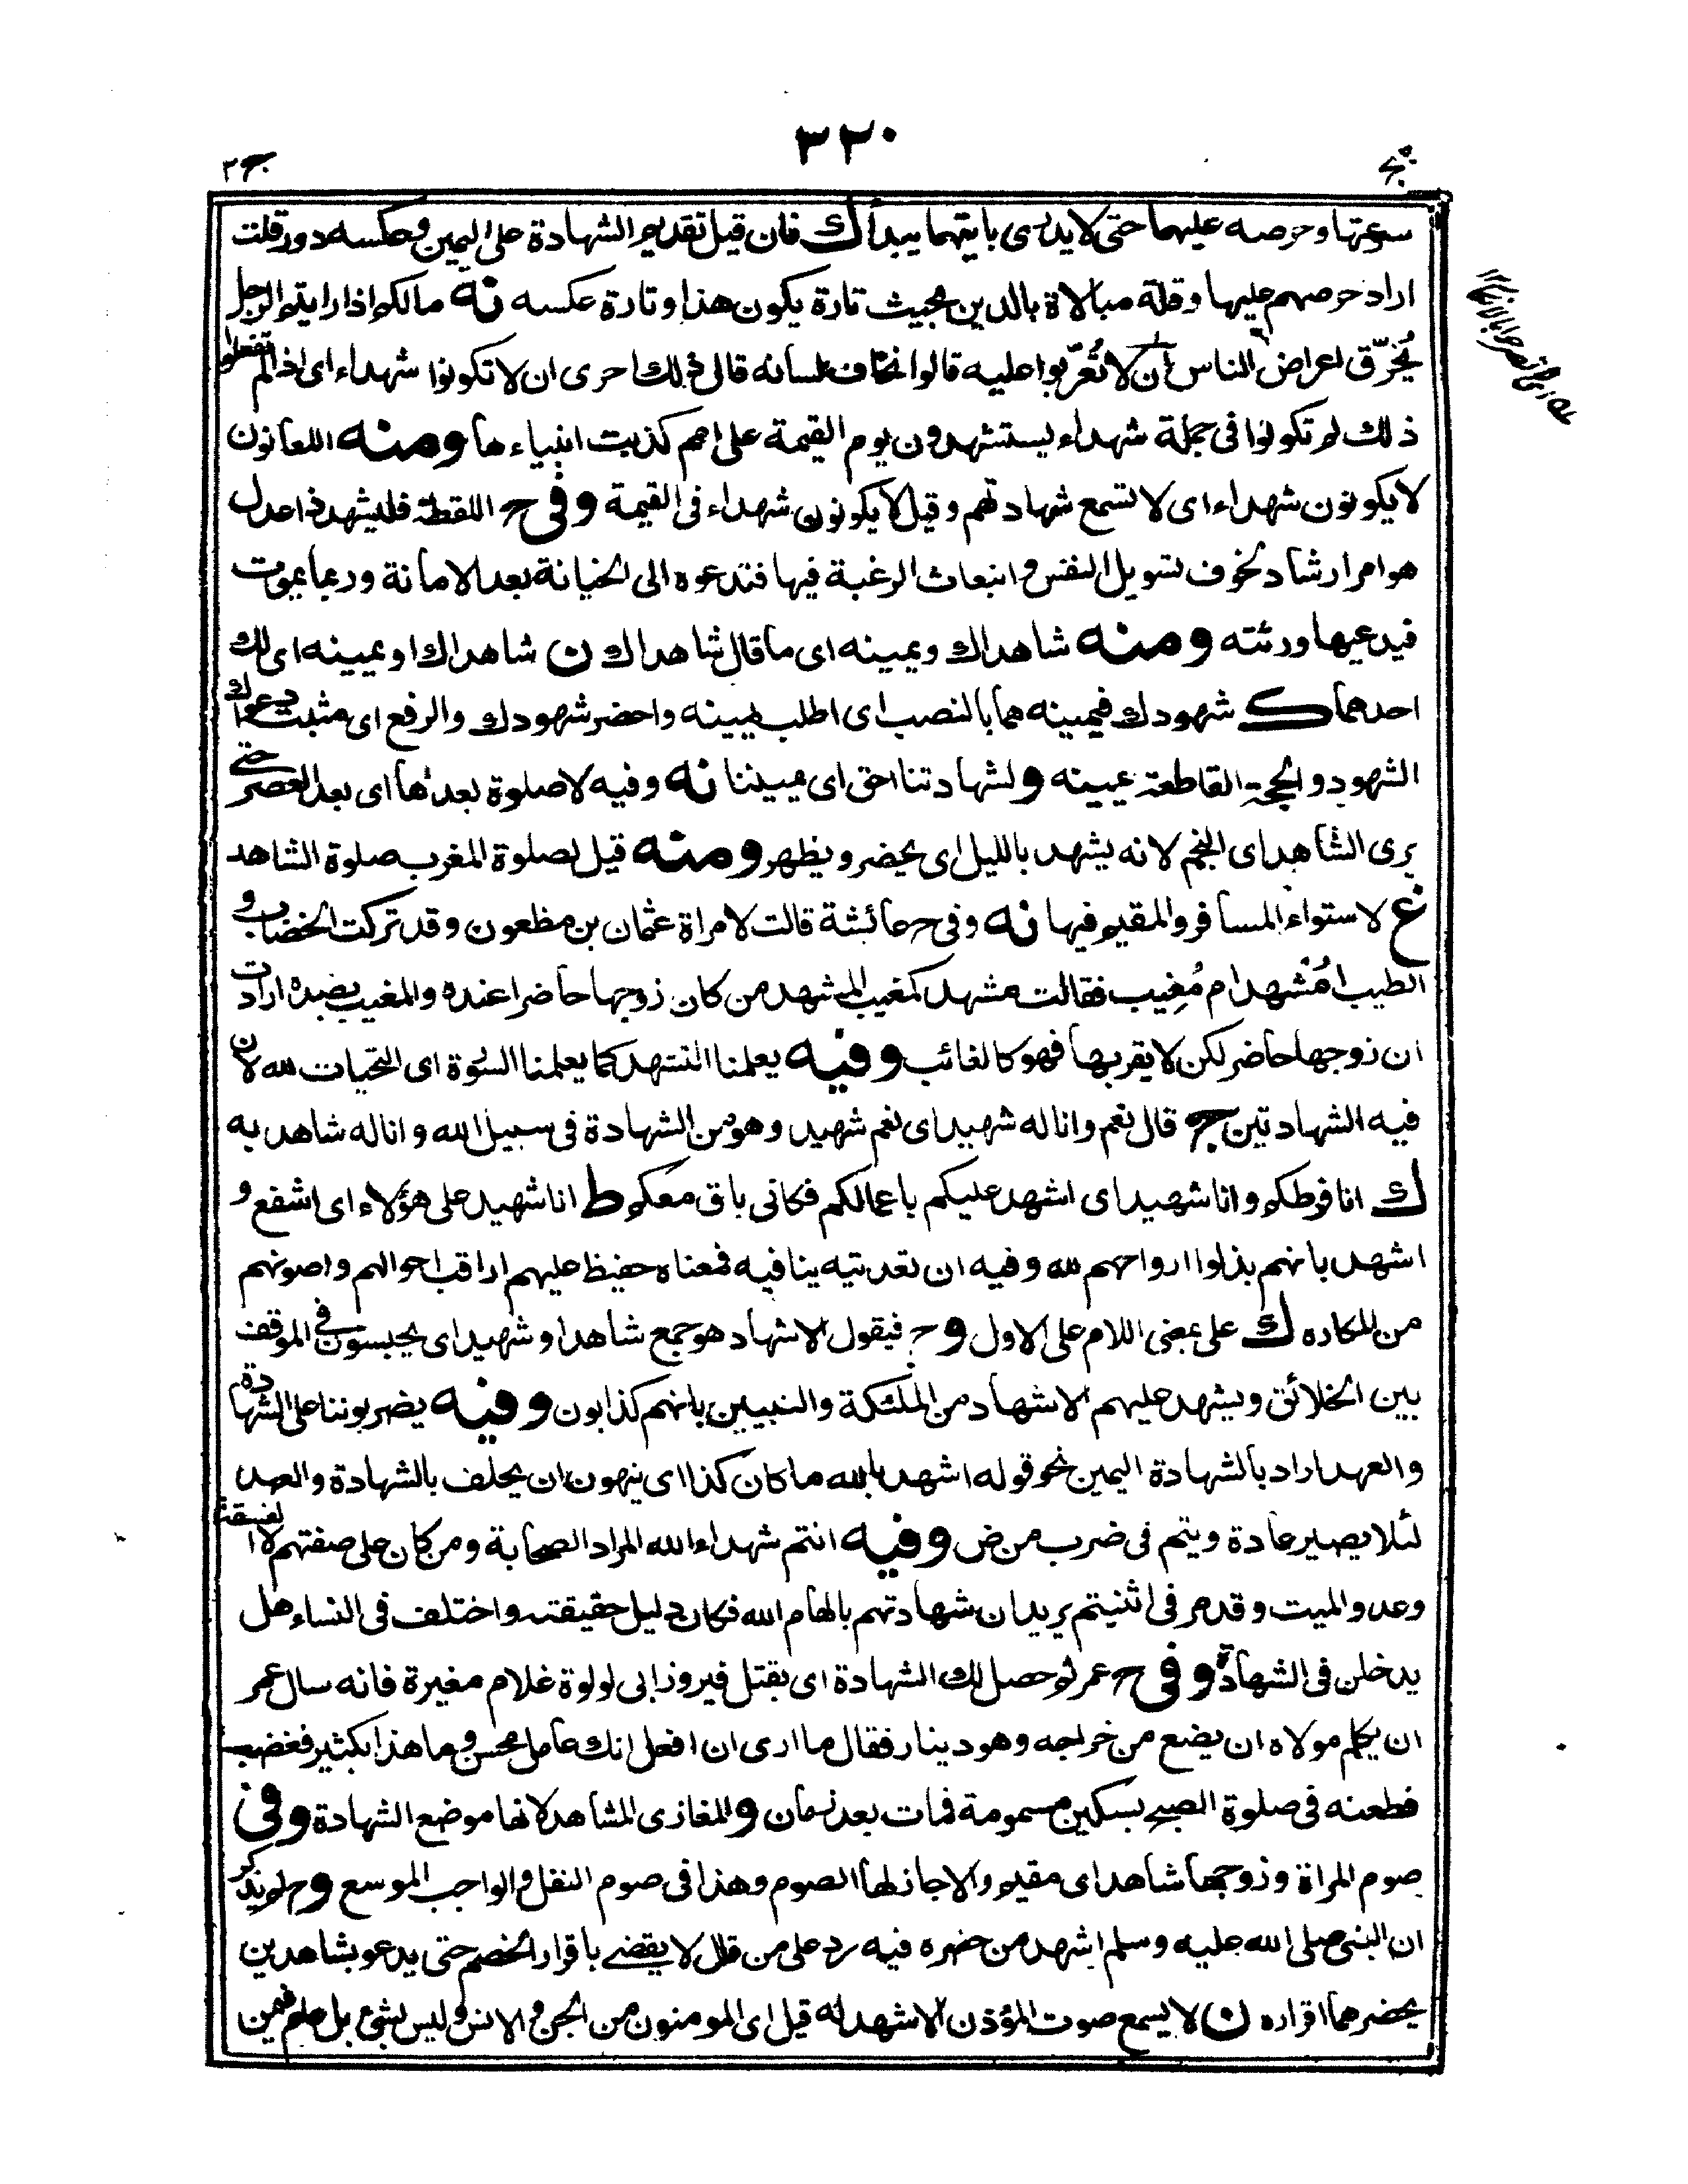 ٣٢٠
سرعتها وحرصه عليهما حتى لا يدرى بايتهما يبدأ ك فان قيل تقديم الشهادة على اليمين وعكسه دور قلت
اراد حرصهم عليها وقلة مبالاة بالدين بحيث تارة يكون هذا وتارة عكسه نه مالكم اذا رايتم الرجل
يُخَرِّق اعراض الناس أن لا تُعَرِّبوا عليه قالوا نخاف لسانه قال ذلك احرى ان لا تكونوا شهداء اى اذا لم تفعلوا
ذلك لم تكونوا فى جملة شهداء يستشهدون يوم القيمة على امم كذبت انبياءها ومنه اللعانون
لا يكونون شهداء اى لا تسمع شهادتهم وقيل لا يكونون شهداء فى القيمة وفى ح اللقطة فليشهد ذا عدل
هو امر ارشاد لخوف تسويل النفس وانبعاث الرغبة فيها فتدعوه الى الخيانة بعد الامانة وربما يموت
فيدعيها ورثته ومنه شاهداك ويمينه اى ما قال شاهداك ن شاهداك او يمينه اى لك
احدهما ك شهودك فيمينه هما بالنصب اى اطلب يمينه واحضر شهودك والرفع اى مثبت دعواك
الشهود والحجة القاطعة يمينه و لشهادتنا احق اى يميننا نه وفيه لا صلوة بعدها اى بعد العصر حتى
يرى الشاهد اى النجم لانه يشهد بالليل اى يحضر ويظهر ومنه قيل لصلوة المغرب صلوة الشاهد
غ لاستواء المسافر والمقيم فيها نه وفى ح عائشة قالت لامراة عثمان بن مظعون وقد تركت الخضاب و
الطيب امُشْهِد ام مُغِيب فقالت مشهد كمغيب المشهد من كان زوجها حاضرا عنده والمغيب بضده ارادت
ان زوجها حاضر لكن لا يقربها فهو كالغائب وفيه يعلمنا التشهد كما يعلمنا السورة اى التحيات لله لان
فيه الشهادتين ج قال نعم وانا له شهيد اى نعم شهيد وهو من الشهادة فى سبيل الله وانا له شاهد به
ك انا فرطكم وانا شهيد اى اشهد عليكم باعمالكم فكانى باق معكم ط انا شهيد على هؤلاء اى اشفع و
اشهد بانهم بذلوا ارواحهم لله وفيه ان تعديته ينافيه فمعناه حفيظ عليهم اراقب احوالهم واصونهم
من المكاره ك على بمعنى اللام على الاول و ح فيقول الاشهاد هو جمع شاهد او شهيد اى يحبسون فى الموقف
بين الخلائق ويشهد عليهم الاشهاد من الملئكة والنبيين بانهم كذابون وفيه يضربوننا على الشهادة
والعهد اراد بالشهادة اليمين نحو قوله اشهد بالله ما كان كذا اى ينهون ان يحلف بالشهادة والعهد
لئلا يصير عادة ويتم فى ضرب من ض وفيه انتم شهداء الله المراد الصحابة ومن كان على صفتهم لا الفسقة
وعدو الميت وقد مر فى اثنيتم يريد ان شهادتهم بالهام الله فكان دليل حقيقته واختلف فى النساء هل
يدخلن فى الشهادة وفى ح عمر ثم حصل لك الشهادة اى بقتل فيروز ابى لولوة غلام مغيرة فانه سال عمر
ان يكلم مولاه ان يضع من خراجه وهو دينار فقال ما ارى ان افعل انك عامل محسن وما هذا بكثير فغضب
فطعنه فى صلوة الصبح بسكين مسمومة فمات بعد زمان و المغازى المشاهد لانها موضع الشهادة وفى
صوم المراة وزوجها شاهد اى مقيم والا جاز لها الصوم وهذا فى صوم النفل والواجب الموسع و ح لم يذكر
ان النبى صلى الله عليه وسلم اشهد من حضره فيه رد على من قال لا يقضى باقرار الخصم حتى يدعو بشاهدين
يحضرهما اقراره ن لا يسمع صوت المؤذن الا شهد له قيل اى المومنون من الجن والانس وليس بشئ بل عام فمن